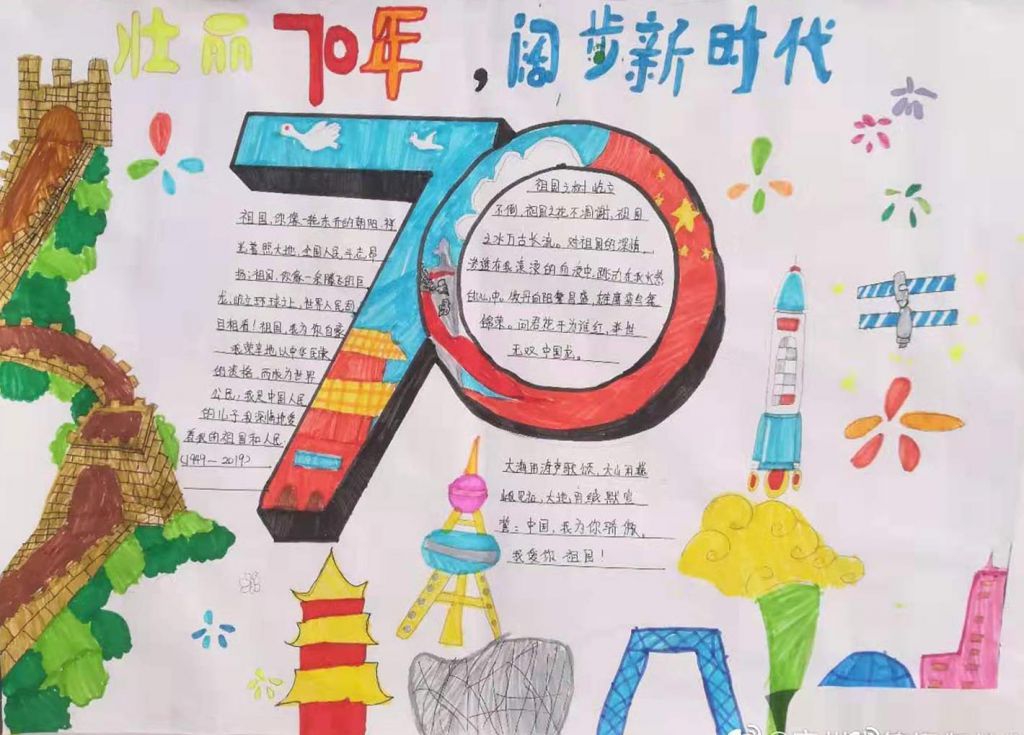 壮丽70年，阔步新时代
祖国，你像一轮东升的朝阳，祥
光普照大地，全国人民斗志昂
扬；祖国，你像一条腾飞的巨
龙，屹立环球之上，世界人民刮
目相看！祖国，我为你自豪
我荣幸地以中华民族
的资格，而成为世界
公民，我是中国人民
的儿子我深情地爱
着我的祖国和人民
(1949～2019)
祖国之树屹立
不倒，祖国之花不凋谢，祖国
之水万古长流。对祖国的深情，
渗透在我滚滚的血液中，跳动在我火热
的心中。牡丹向阳繁昌盛，雄鹰
锦荣。问君花开为谁红，举世
无双中国龙。
大海用涛声歌颂，大山用巍
峨见证，大地用缄默宣
誓：中国，我为你骄傲，
我爱你 祖国！